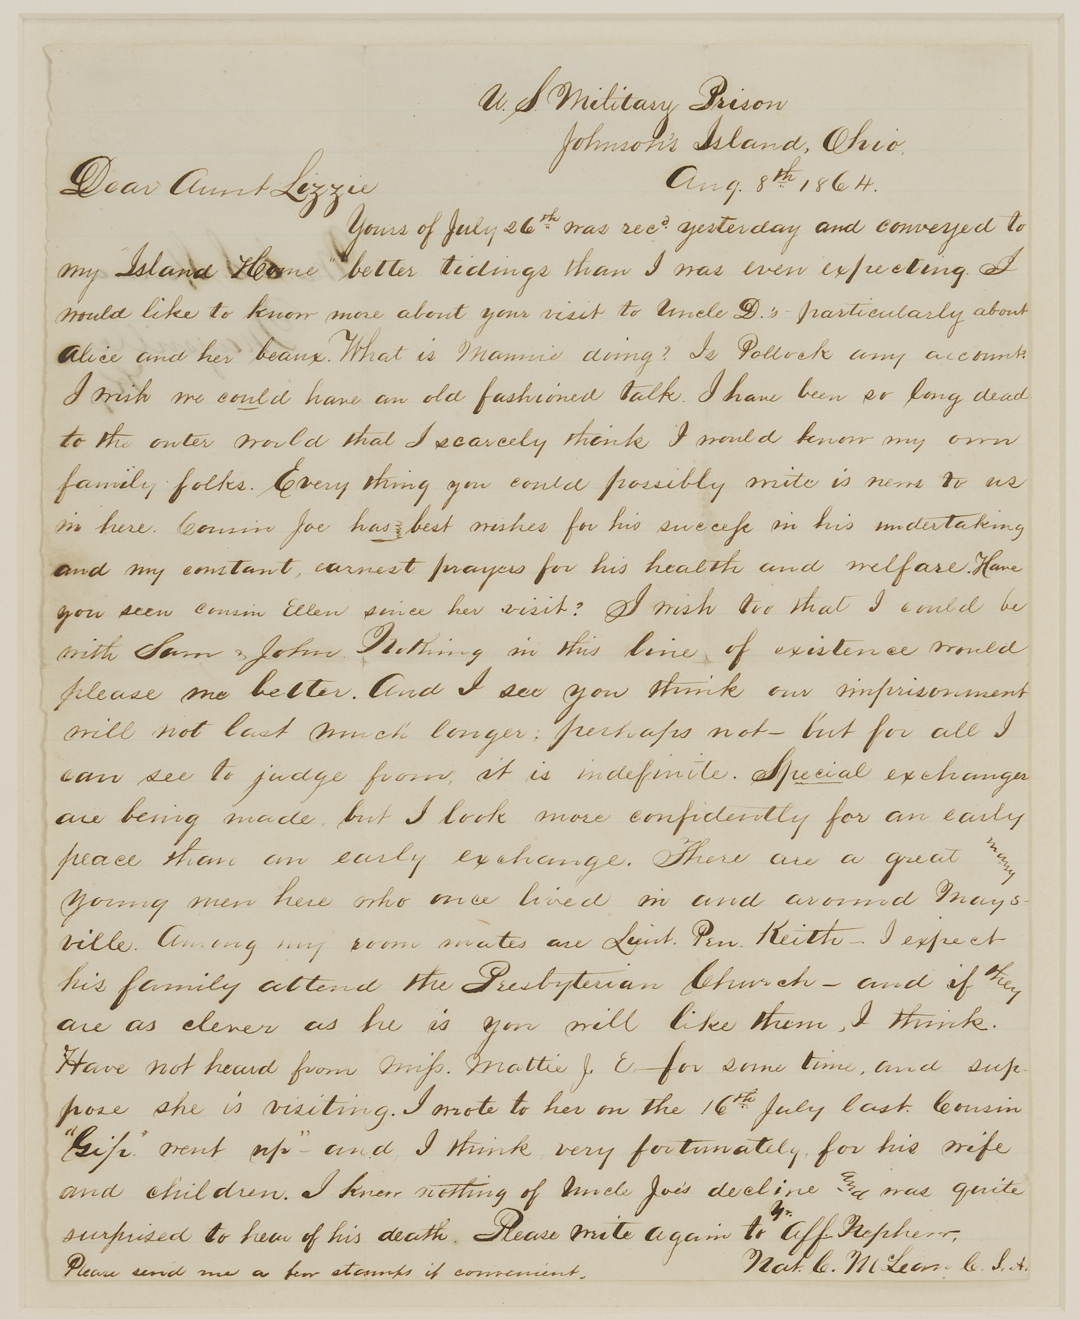 U. S. Military Prison
Johnson's Island, Ohio.
Aug. 8th 1864.
Dear Aunt Lizzie
Yours of July 26th was recd yesterday and conveyed to
my "Island Home" better tidings than I was even expecting. I
would like to know more about your visit to Uncle D.'s - particularly about
Alice and her beaux. What is Mannie doing? Is Pollock any account.
I wish we could have an old fashioned talk. I have been so long dead
to the outer world that I scarcely think I would know my own
family folks. Every thing you could possibly write is news to us
in here. Cousin Joe has best wishes for his success in his undertaking
and my constant, earnest prayers for his health and welfare. Have
you seen cousin Ellen since her visit? I wish too that I could be
with Sam & John. Nothing in this line of existence would
please me better. And I see you think our imprisonment
will not last much longer; perhaps not - but for all I
can see to judge from, it is indefinite. Special exchanges
are being made, but I look more confidently for an early
peace than an early exchange. There are a great many
young men here who once lived in and around Mays-
ville. Among my room mates are Lieut. Pen. Keith - I expect
his family attend the Presbyterian Church - and if they
are as clever as he is you will like them, I think.
Have not heard from Miss. Mattie J. E - for some time, and sup-
pose she is visiting. I wrote to her on the 16th July last. Cousin
"Gip." went up" - and I think very fortunately for his wife
and children. I knew nothing of Uncle Joe's decline and was quite
surprised to hear of his death. Please write again to Yr. Aff. Nephew,
Nat. C. McLean C. S. A.
Please send me a few stamps if convenient.